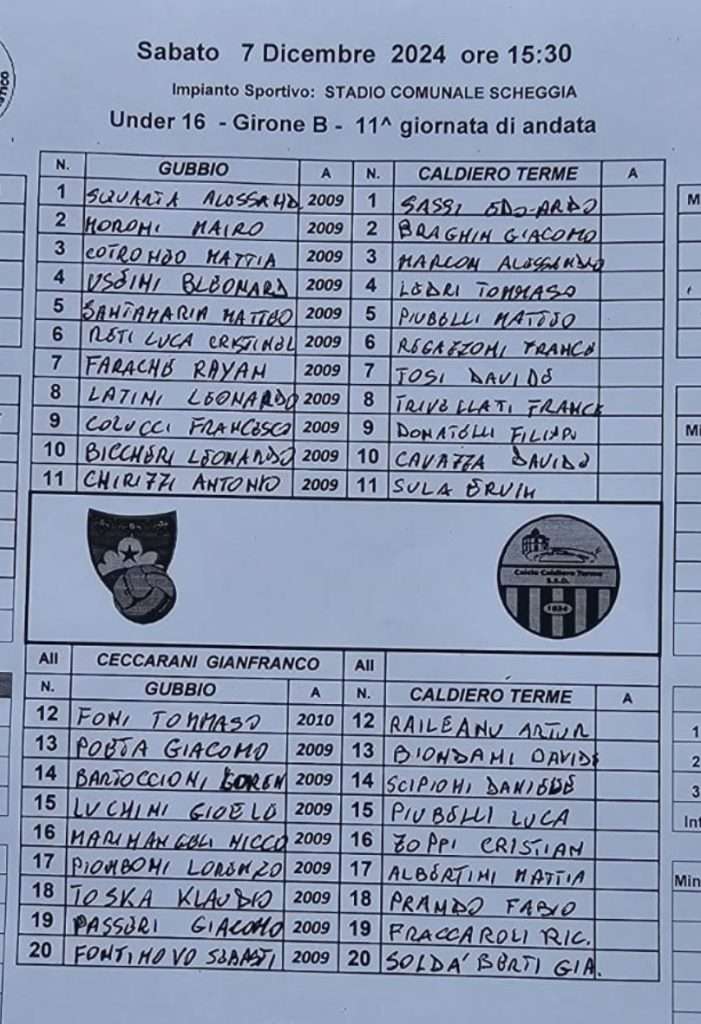 Sabato 7 Dicembre 2024 ore 15:30
Impianto Sportivo: STADIO COMUNALE SCHEGGIA
Under 16 - Girone B - 11^ giornata di andata
N. GUBBIO A N. CALDIERO TERME A
1 2009 1 SASSI EDOARDO
2 MORONI MAIRO 2009 2 BRAGHIN GIACOMO
3 COTRONEO MATTIA 2009 3 MARCON ALESSANDRO
4 USEINI BLEONARD 2009 4 LEDRI TOMMASO
5 SANTAMARIA MATTEO 2009 5 PIUBELLI MATTEO
6 RETI LUCA CRISTINEL 2009 6 REGAZZONI FRANCE
7 FARACHE RAYAN 2009 7 TOSI DAVIDE
8 LATINI LEONARDO 2009 8 TRIVELLATI FRANCE
9 COLUCCI FRANCESCO 2009 9 DONATELLI FILIPPO
10 BICCHERI LEONARDO 2009 10 CAVAZZA DAVIDE
11 CHIRIZZI ANTONIO 2009 11 SULA ERVIN
Calcio Caldiero Terme
S.S.D.
1934
All CECCARANI GIANFRANCO All
N. GUBBIO A N. CALDIERO TERME A
12 FONI TOMMASO 2010 12 RAILEANU ARTUR
13 POETA GIACOMO 2009 13 BIONDANI DAVIDE
14 BARTOCCIONI LOREN 2009 14 SCIPIONI DANIELE
15 LUCHINI GIOELE 2009 15 PIUBELLI LUCA
16 MARINANGELI NICCO 2009 16 ZOPPI CRISTIAN
17 PIOMBONI LORENZO 2009 17 ALBERTINI MATTIA
18 TOSKA KLAUDIO 2009 18 PRANDO FABIO
19 PASSERI GIACOMO 2009 19 FRACCAROLI RIC.
20 FONTINOVO SEBASTI 2009 20 SOLDA' BERTI GIA.